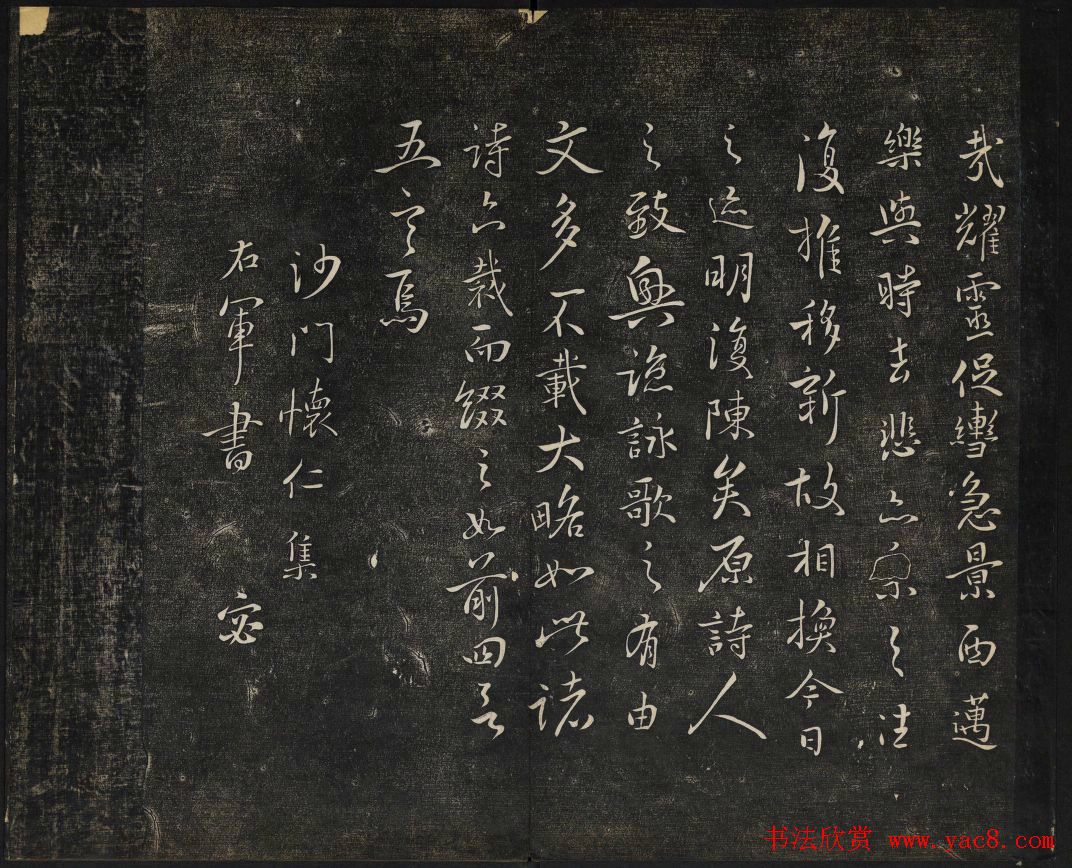 哉耀靈促轡急景西邁
樂與時去悲亦系之往
復推移新故相換今日
之迹明復陳矣原詩人
之致興諒詠歌之有由
文多不載大略如此諸
詩亦裁而綴之如前四言
五言焉
沙門懷仁集
右軍書 宓
书法欣赏 www.yac8.com